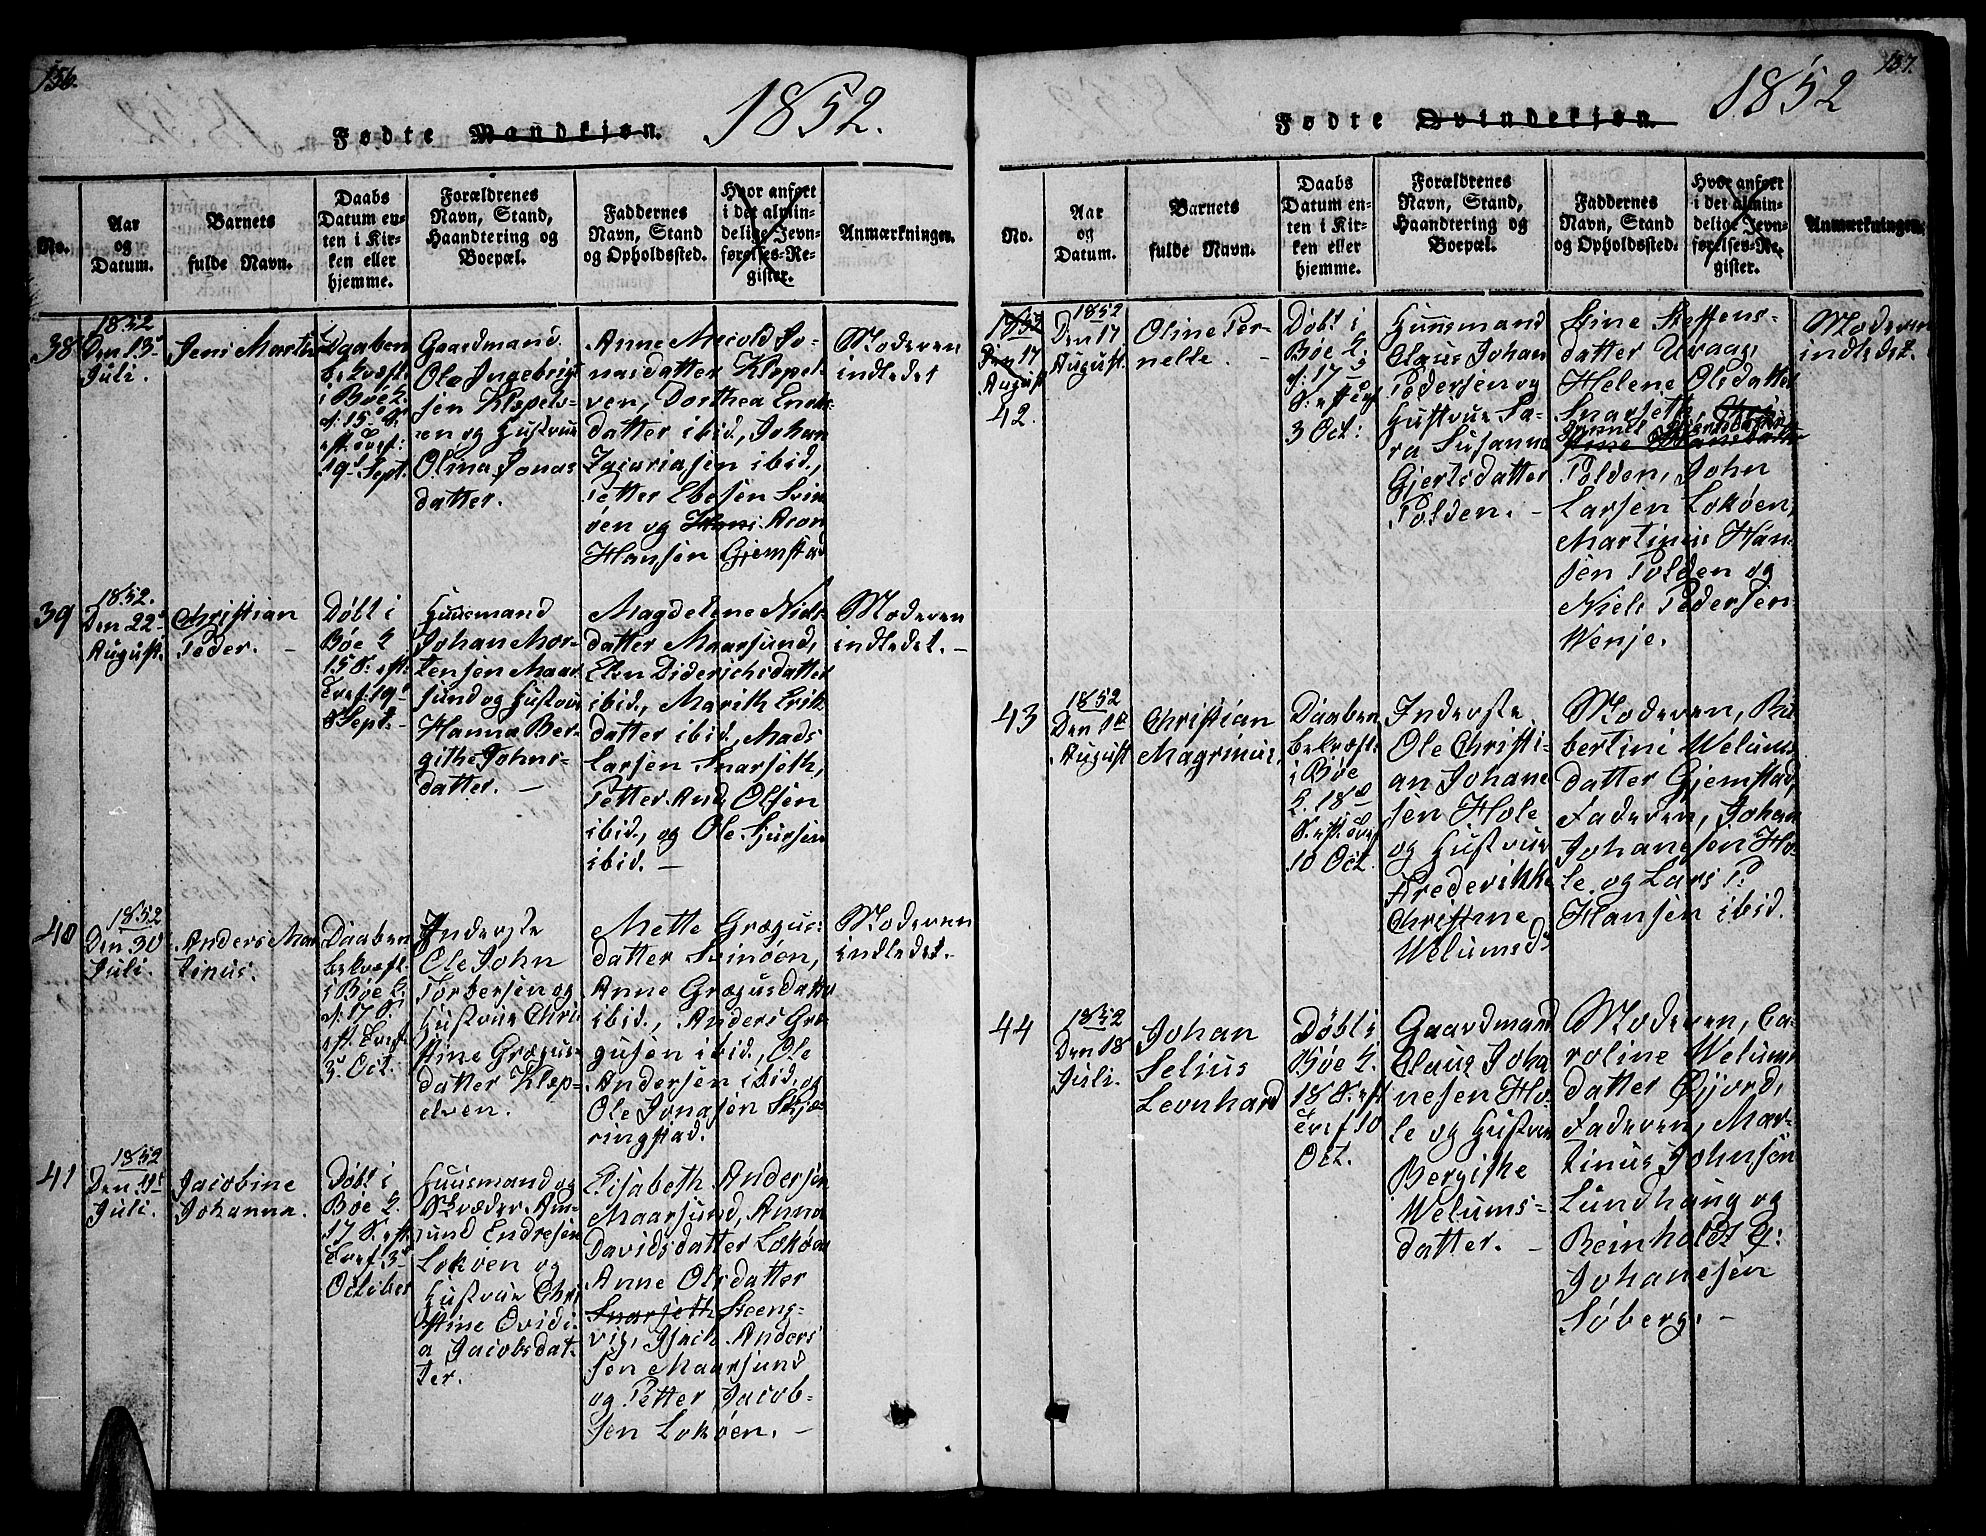 156.
1852.
Fødte Mandkjøn.
No.
Aar
og
Datum.
Barnets
fulde Navn.
Daabs
Datum en-
ten i Kir-
ken eller
hjemme.
Forældrenes
Navn, Stand,
Haandtering og
Boepæl.
Faddernes
Navn, Stand
og Opholdssted.
Hvor anført
i det almin-
delige Jevn-
førelses-Re-
gister.
Anmærkninger.
38
1852
Den 13
Juli.
Jens Martin
Daaben
bekræft.
i Bøe K.
d: 15 S.
eft. Tref:
19 Sept.
Gaardmand
Ole Ingebrigt
sen Klepels-
en og Hustrue
Olina Jonas
datter.
Anne Jo-
nasdatter Klepel
ven, Dorthea
datter ibid, Johan
Zacariasen ibid.,
Petter Ebesen Svin
øen og Hans Aron
Hansen Gjemstad
Moderen
indledet
39
1852.
Den 22
August.
Christian
Peder. -
Døbt i
Bøe K
15 S. eft.
Tref. 19
Sept. -
Huusmand
Johan Mor-
tensen Maar
sund og Hustrue
Hanna Ber-
githe Johns-
datter. -
Magdelene Niels
datter Maarsund,
Elen Diderichsdatter
ibid., Marith
datter ibid., Mads
Larsen Snarseth,
Petter And. Olsen
ibid., og Ole Sjursen
ibid. -
Moderen
indledet. -
40
1852
Den 30
Juli.
Anders Mar
tinus.
Daaben
bekræft.
i Bøe K.
d. 17 S.
eft. Tref.
3 Oct.
Inderste
Ole John
Torbersen og
Hustrue Chri
stine Grægus-
datter Klep-
elven.
Mette Grægus-
datter Svinøen,
Anne Grægusdatter
ibid., Anders Græ
gusen ibid., Ole
Andersen ibid. og
Ole Jonasen Skjæ
ringstad.
Moderen
indledet. -
41
1852
Den 19
Juli.
Jacobine
Johanna.
Døbt i
Bøe K.
17 S. eft.
Tref. 3
October
Huusmand og
Skræder Am-
und Endresen
Lokøen og
Hustrue Chri
stine Ovidi-
a Jacobsdat-
ter.
Elisabeth Andersen
Maarsund, Anna
Davidsdatter Lokøen
Anne Olsdatter
Snarseth Steens-
vig, Isach Anders
sen Maarsund
og Petter Jacob-
sen Lokøen. -
157.
1852
Fødte Qvindekjøn.
No.
Aar
og
Datum.
Barnets
fulde Navn.
Daabs
Datum en-
ten i Kir-
ken eller
hjemme.
Forældrenes
Navn, Stand,
Haandtering og
Boepæl.
Faddernes
Navn, Stand
og Opholdssted.
Hvor anført
i det almin-
delige Jevn-
førelses-Re-
gister.
Anmærkninger.
1852
Den 17
August
42.
1852
Den 17
August.
Oline Per-
nelle. -
Døbt i
Bøe K.
d: 17
S. eft Tref
3 Oct:
Huusmand
Claus Johan
Pedersen og
Hustrue Sa-
ra Susanna
Gjertsdatter
Polden. -
Stine Steffens-
datter Uvaag,
Helene Olsdatter
Snarseth,
Stine
Polden, John
Larsen Lokøen,
Martinus Han
sen Polden og
Niels Pedersen
Wenje.
Moderen
indledet.
43
1852
Den 1
August
Christian
Magrinus.
Daaben
bekræft.
i Bøe
K. 18
S. eft. Tref
10 Oct.
Inderste
Ole Christi-
an Johane
sen Hole
og Hustrue
Frederikke
Christine
Welumsd
Moderen,
bertini Welums
datter Gjemstad,
Faderen, Johan
Johanesen Ho-
le og Lars P.
Hansen ibid.
44
1852
Den 18
Juli.
Johan
Selius
Leonhard
Døbt i
Bøe K.
18 S. eft
Tref 10
Oct.
Gaardmand
Claus Joha
nesen Ho-
le og Hustrue
Bergithe
Welums-
datter. -
Moderen, Ca-
roline Welums
datter Gjord,
Faderen, Mar-
tinus Johnsen
Lundhaug og
Reinholdt C:
Johanesen
Søberg. -